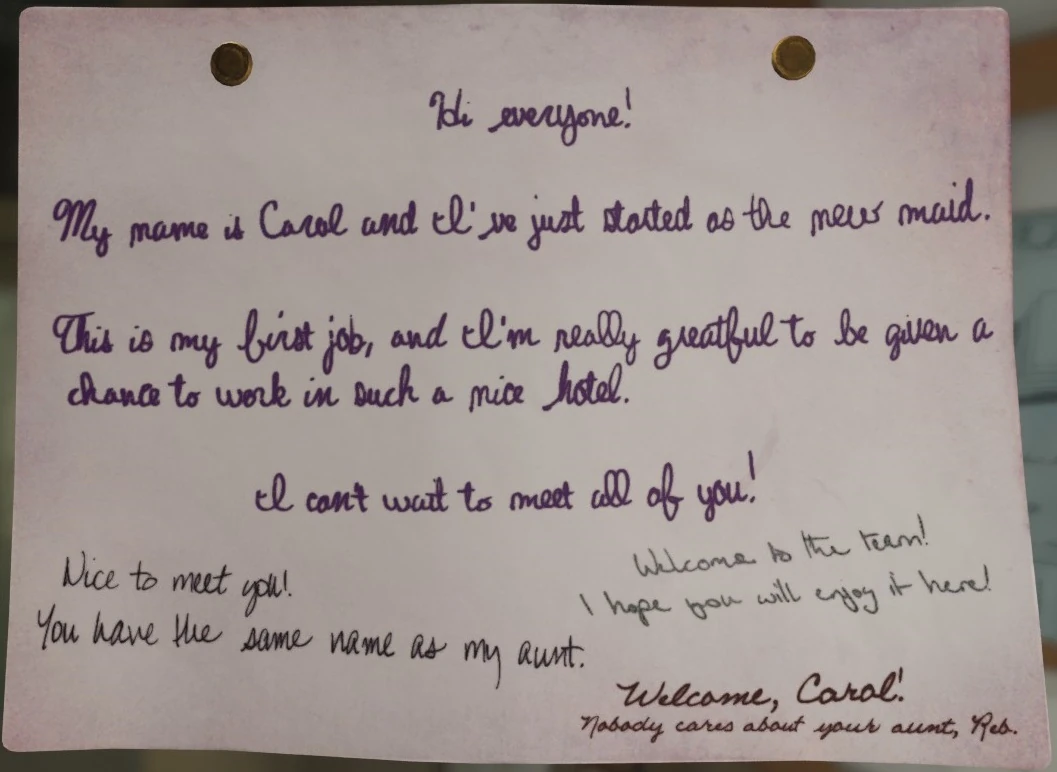 Hi everyone!
My name is Carol and I've just started as the new maid.
This is my first job, and I'm really greatful to be given a
chance to work in such a nice hotel.
I can't wait to meet all of you!
Nice to meet you!
You have the same name as my aunt.
Welcome to the team!
I hope you will enjoy it here!
Welcome, Carol!
Nobody cares about your aunt, Reb.